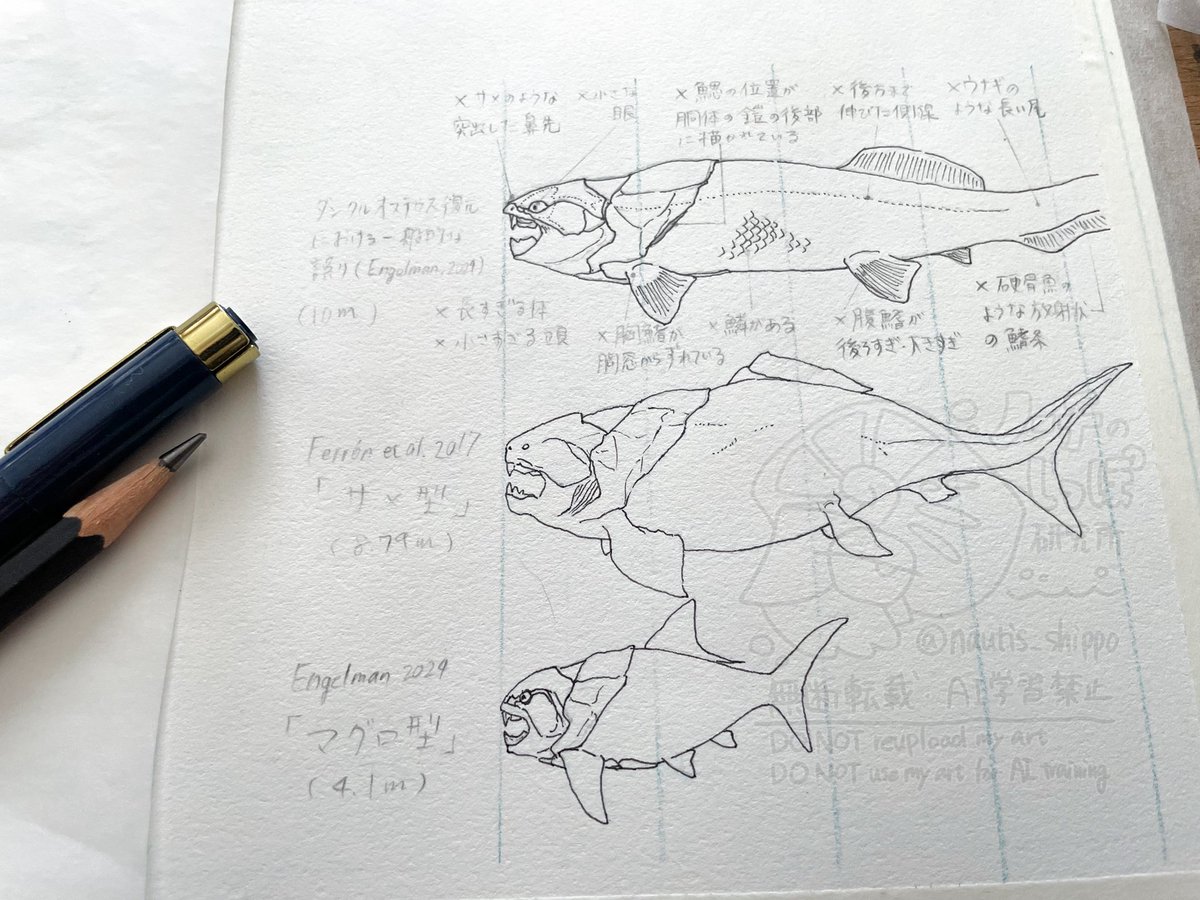 × サメのような
突出した鼻先
× 小さな
眼
× 鰓の位置が
胴体の鎧の後部
に描かれている
× 後方まで
伸びた側線
× ウナギの
ような長い尾
ダンクルオステウス復元
における一般的な
誤り (Engelman, 2024)
(10m)
× 長すぎる体
× 小さすぎる頭
× 胸鰭が
胸窓からずれている
× 鱗がある
× 腹鰭が
後ろすぎ・小さすぎ
× 硬骨魚の
ような放射状
の鰭条
Ferrón et al. 2017
「サメ型」
(8.79m)
Engelman 2024
「マグロ型」
(4.1m)
しっぽ
研究所
@nautis_shippo
無断転載・AI学習禁止
DO NOT reupload my art
DO NOT use my art for AI training